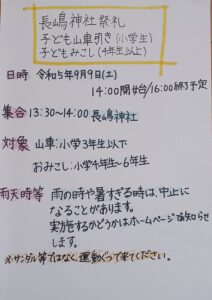 長嶋神社祭礼
子ども山車引き(小学生)
子どもみこし(4年生以上)
日時 令和5年9月9日(土)
14:00開始/16:00終了予定
集合 13:30~14:00 長嶋神社
対象 山車:小学3年生以下
おみこし:小学4年生~6年生
雨天時等 雨の時や暑すぎる時は、中止に
なることがあります。
実施するかどうかはホームページでお知らせ
します。
※サンダル等ではなく、運動ぐつで来てください。